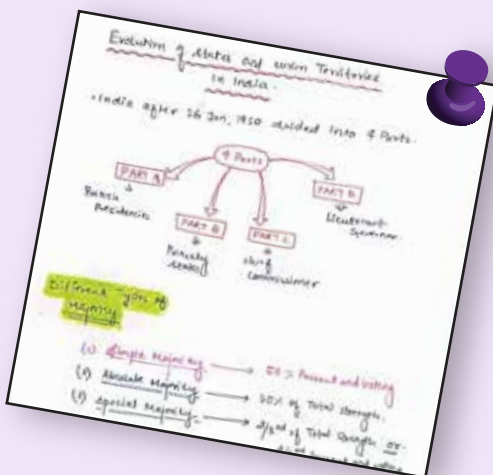 Evolution of states and union Territories
in India.
• India after 26 Jan, 1950 divided into 4 Parts.
4 Parts
PART A
British
Presidencies
PART B
Princely
states
PART C
chief
commissioner
PART D
Lieutenant
Governor
Different Types of
Majority
(1) Simple Majority → 50% Present and voting
Absolute Majority → 50% of Total strength.
Special Majority → 2/3rd of Total Strength or
present and